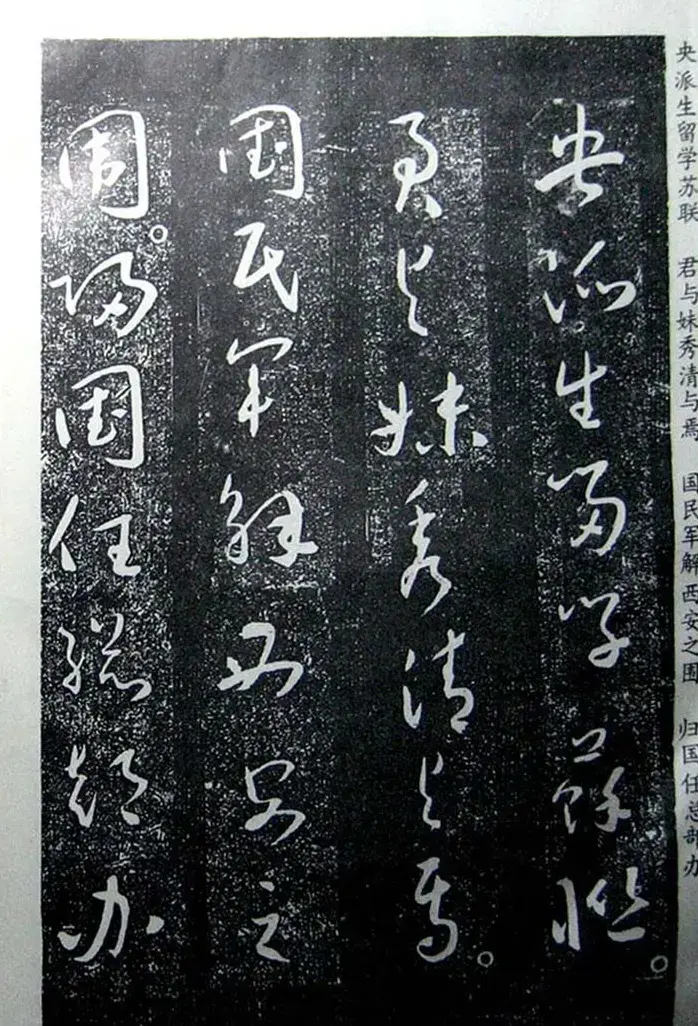 央派生留学苏联 君与妹秀清与焉 国民军解西安之围 归国任总部办
央派生留学蘇聯。
君与妹秀清与焉。
國民军解西安之
围。归國任總部办